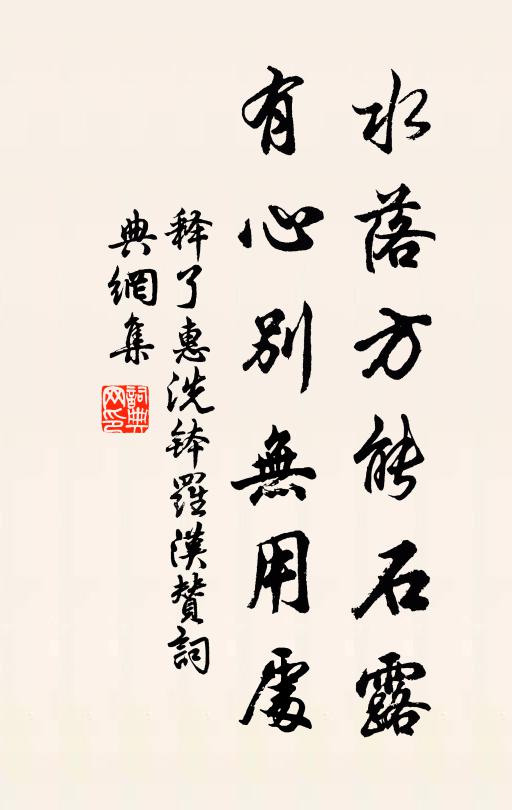 水落方能石露
有心別無用處
釋了惠洗鉢羅漢贊詞
典網集
詞典
网印